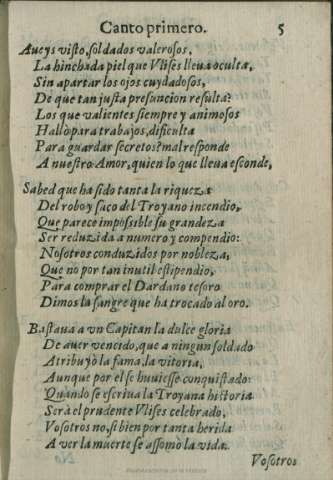 Canto primero. 5
Aueys visto, soldados valerosos,
La hinchada piel que Vlises lleua oculta,
Sin apartar los ojos cuydadosos,
De que tan justa presuncion resulta?
Los que valientes siempre y animosos
Hallò para trabajos, dificulta
Para guardar secretos? mal responde
A nuestro Amor, quien lo que lleua esconde,
Sabed que ha sido tanta la riqueza
Del robo y saco del Troyano incendio,
Que parece impossible su grandeza
Ser reduzida a numero y compendio:
Nosotros conduzidos por nobleza,
Que no por tan inutil estipendio,
Para comprar el Dardano tesoro
Dimos la sangre que ha trocado al oro.
Bastaua a vn Capitan la dulce gloria
De auer vencido, que a ningun soldado
Atribuyò la fama, la vitoria,
Aunque por el se huuiesse conquistado:
Quando se escriua la Troyana historia
Serà el prudente Vlises celebrado,
Vosotros no, si bien por tanta herida
A ver la muerte se assomò la vida.
Vosotros